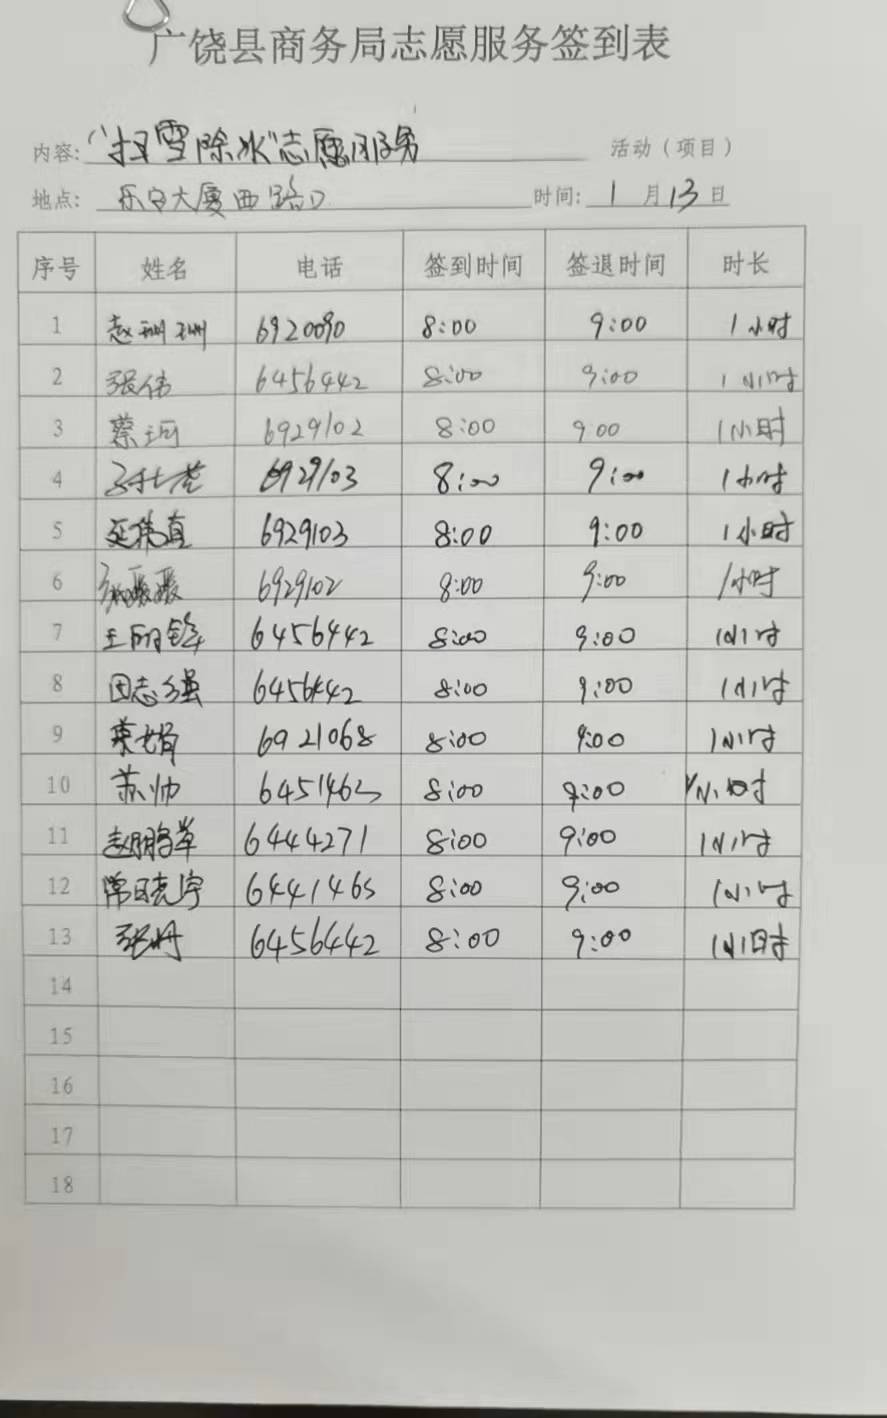 广饶县商务局志愿服务签到表
内容: "扫雪除冰"志愿服务 活动（项目）
地点: 乐安大厦西路口 时间: 1月13日
序号 姓名 电话 签到时间 签退时间 时长
1 赵珊珊 6920090 8:00 9:00 1小时
2 张伟 6456442 8:00 9:00 1小时
3 蔡珂 6929102 8:00 9:00 1小时
4 6929103 8:00 9:00 1小时
5 延伟真 6929103 8:00 9:00 1小时
6 6929102 8:00 9:00 1小时
7 6456442 8:00 9:00 1小时
8 田志强 6456442 8:00 9:00 1小时
9 6921068 8:00 9:00 1小时
10 苏帅 8:00 9:00 1小时
11 赵鹏 6444271 8:00 9:00 1小时
12 常晓宇 6441465 8:00 9:00 1小时
13 张丹 6456442 8:00 9:00 1小时
14
15
16
17
18